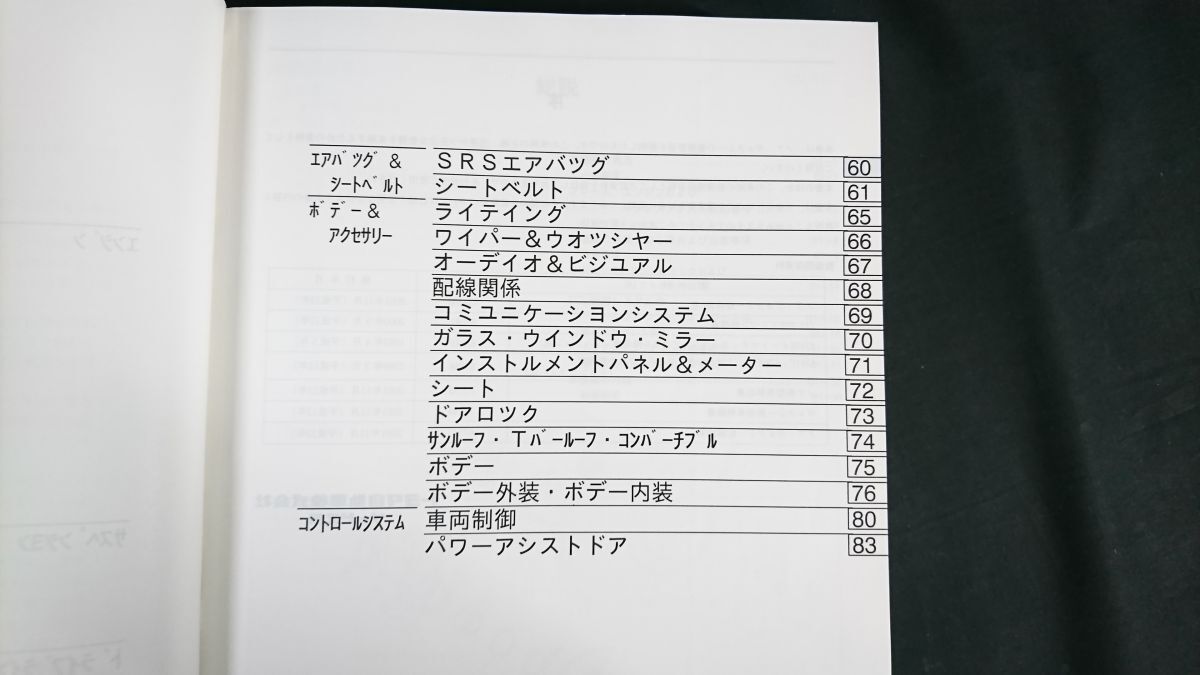 エアバッグ & SRSエアバツグ 60
シートベルト シートベルト 61
ボデー & ライテイング 65
アクセサリー ワイパー&ウオツシヤー 66
オーデイオ&ビジユアル 67
配線関係 68
コミユニケーシヨンシステム 69
ガラス・ウインドウ・ミラー 70
インストルメントパネル&メーター 71
シート 72
ドアロツク 73
サンルーフ・Tバールーフ・コンバーチブル 74
ボデー 75
ボデー外装・ボデー内装 76
コントロールシステム 車両制御 80
パワーアシストドア 83